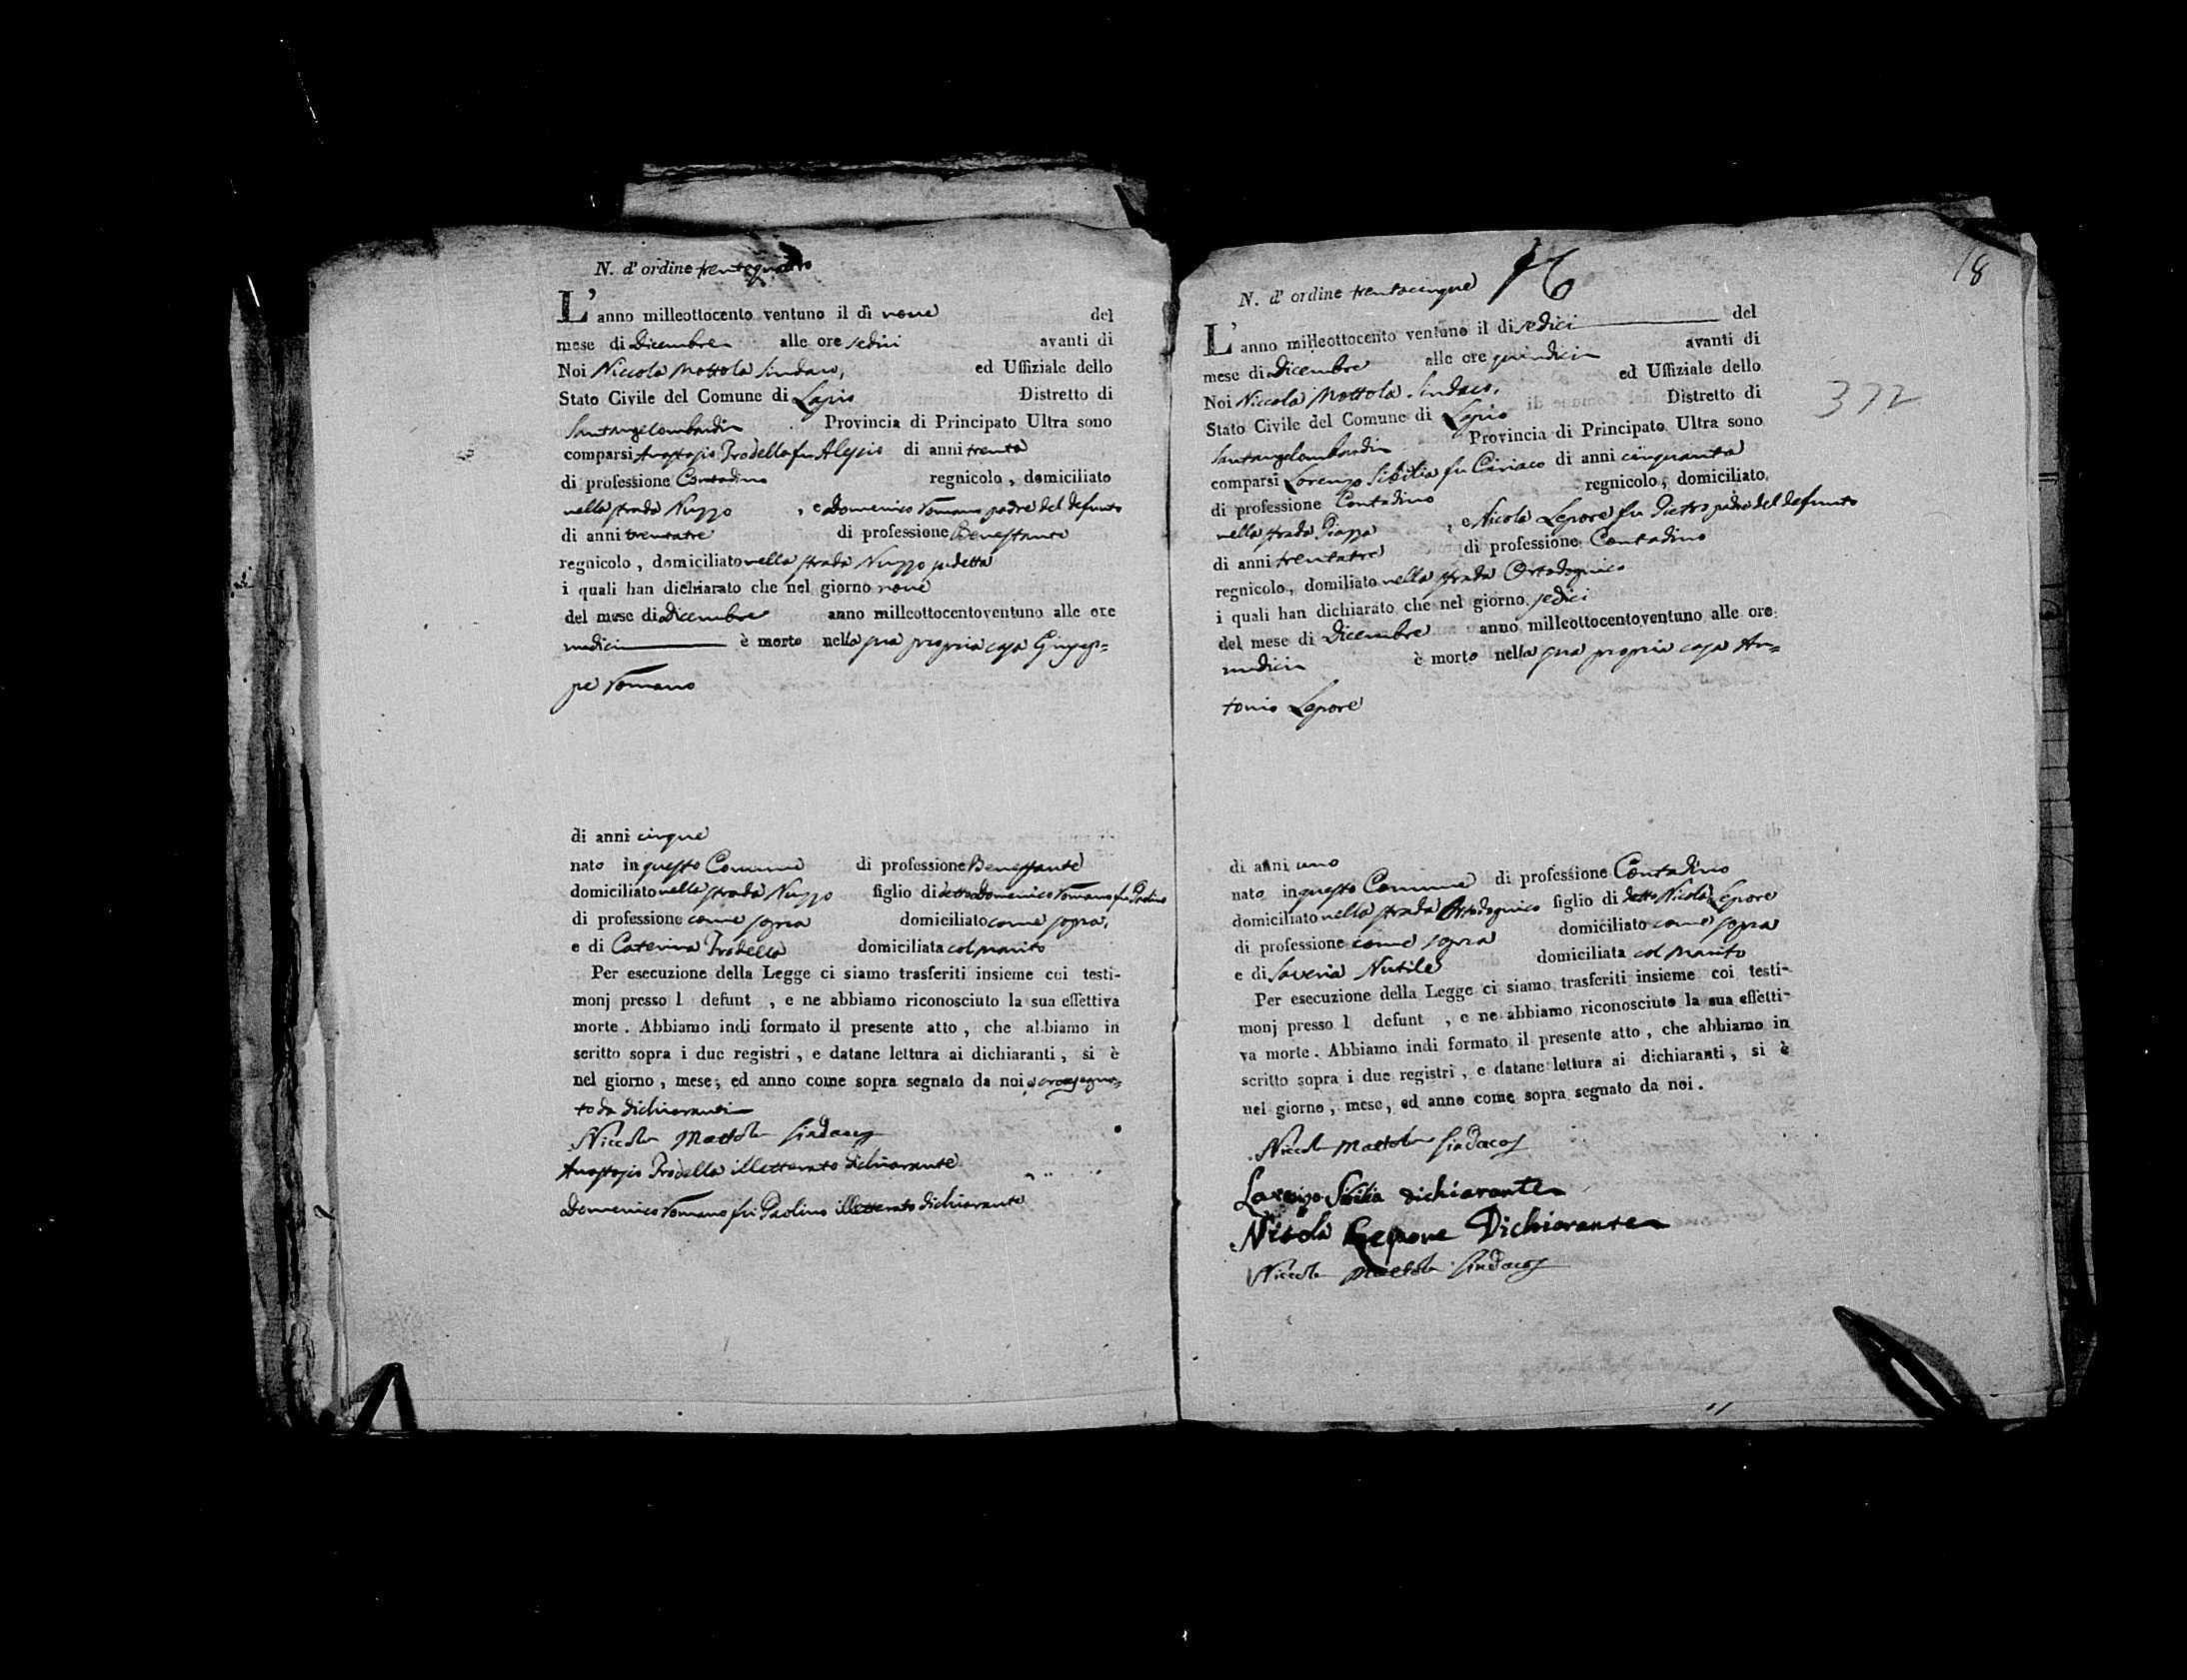 N. d' ordine trentaquattro
L'anno milleottocento ventuno il dì nove del
mese di Dicembre alle ore sedici avanti di
Noi Niccola Mottola Sindaco, ed Uffiziale dello
Stato Civile del Comune di Lapio Distretto di
Santangelombardi Provincia di Principato Ultra sono
comparsi Anastasio Trodella fu Alessio di anni trenta
di professione Contadino regnicolo, domiciliato
nella strada Nuzzo, e Domenico Romano padre del defunto
di anni trentatre di professione Benestante
regnicolo, domiciliato nella strada Nuzzo sudetta
i quali han dichiarato che nel giorno nove
del mese di Dicembre anno milleottocentoventuno alle ore
undici è morto nella sua propria casa Giusep=
pe Romano
di anni cinque
nato in questo Comune di professione Benestante
domiciliato nella strada Nuzzo figlio di detto Domenico Romano fu Paolino
di professione come sopra domiciliato come sopra,
e di Caterina Trodella domiciliata col marito
Per esecuzione della Legge ci siamo trasferiti insieme coi testi-
monj presso l defunt , e ne abbiamo riconosciuto la sua effettiva
morte. Abbiamo indi formato il presente atto, che abbiamo in
scritto sopra i due registri, e datane lettura ai dichiaranti, si è
nel giorno, mese, ed anno come sopra segnato da noi, e crocesegna=
to da dichiaranti
Niccola Mottola Sindaco
Anastasio Trodella illetterato dichiarante
Domenico Romano fu Paolino illetterato dichiarante
18
N. d' ordine trentacinque 16
L'anno milleottocento ventuno il di sedici del
mese di Dicembre alle ore quindici avanti di
Noi Niccola Mottola Sindaco, ed Uffiziale dello
372
Stato Civile del Comune di Lapio Distretto di
Santangelombardi Provincia di Principato Ultra sono
comparsi Lorenzo Sibilia fu Ciriaco di anni cinquanta
di professione Contadino regnicolo, domiciliato
nella strada Piazza, e Nicola Lepore fu Pietro padre del defunto
di anni trentatre di professione Contadino
regnicolo, domiliato nella strada Ortodognico
i quali han dichiarato che nel giorno sedici
del mese di Dicembre anno milleottocentoventuno alle ore
undici è morto nella sua propria casa An=
tonio Lepore
di anni uno
nato in questo Comune di professione Contadino
domiciliato nella strada Ortodognico figlio di detto Nicola Lepore
di professione come sopra domiciliato come sopra
e di Saveria Nutile domiciliata col marito
Per esecuzione della Legge ci siamo trasferiti insieme coi testi-
monj presso l defunt , e ne abbiamo riconosciuto la sua effetti-
va morte. Abbiamo indi formato il presente atto, che abbiamo in
scritto sopra i due registri, e datane lettura ai dichiaranti, si è
nel giorno, mese, ed anno come sopra segnato da noi.
Niccola Mottola Sindaco
Lorenzo Sibilia dichiarante
Nicola Lepore Dichiarante
Niccola Mottola Sindaco